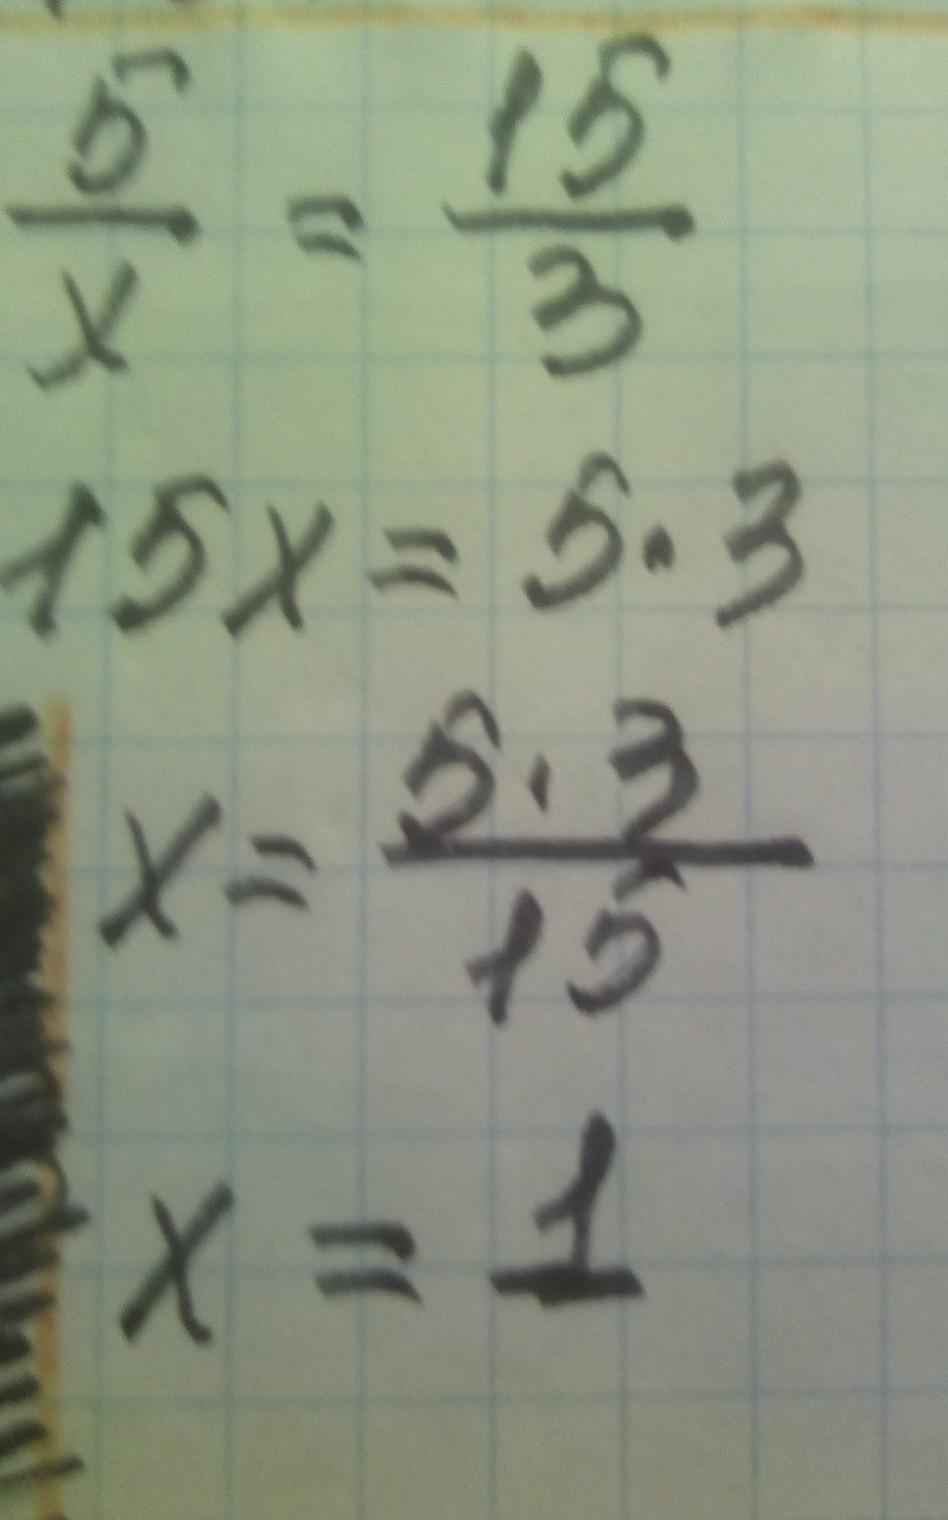 5/x = 15/3
15x = 5·3
x = 5·3/15
x = 1